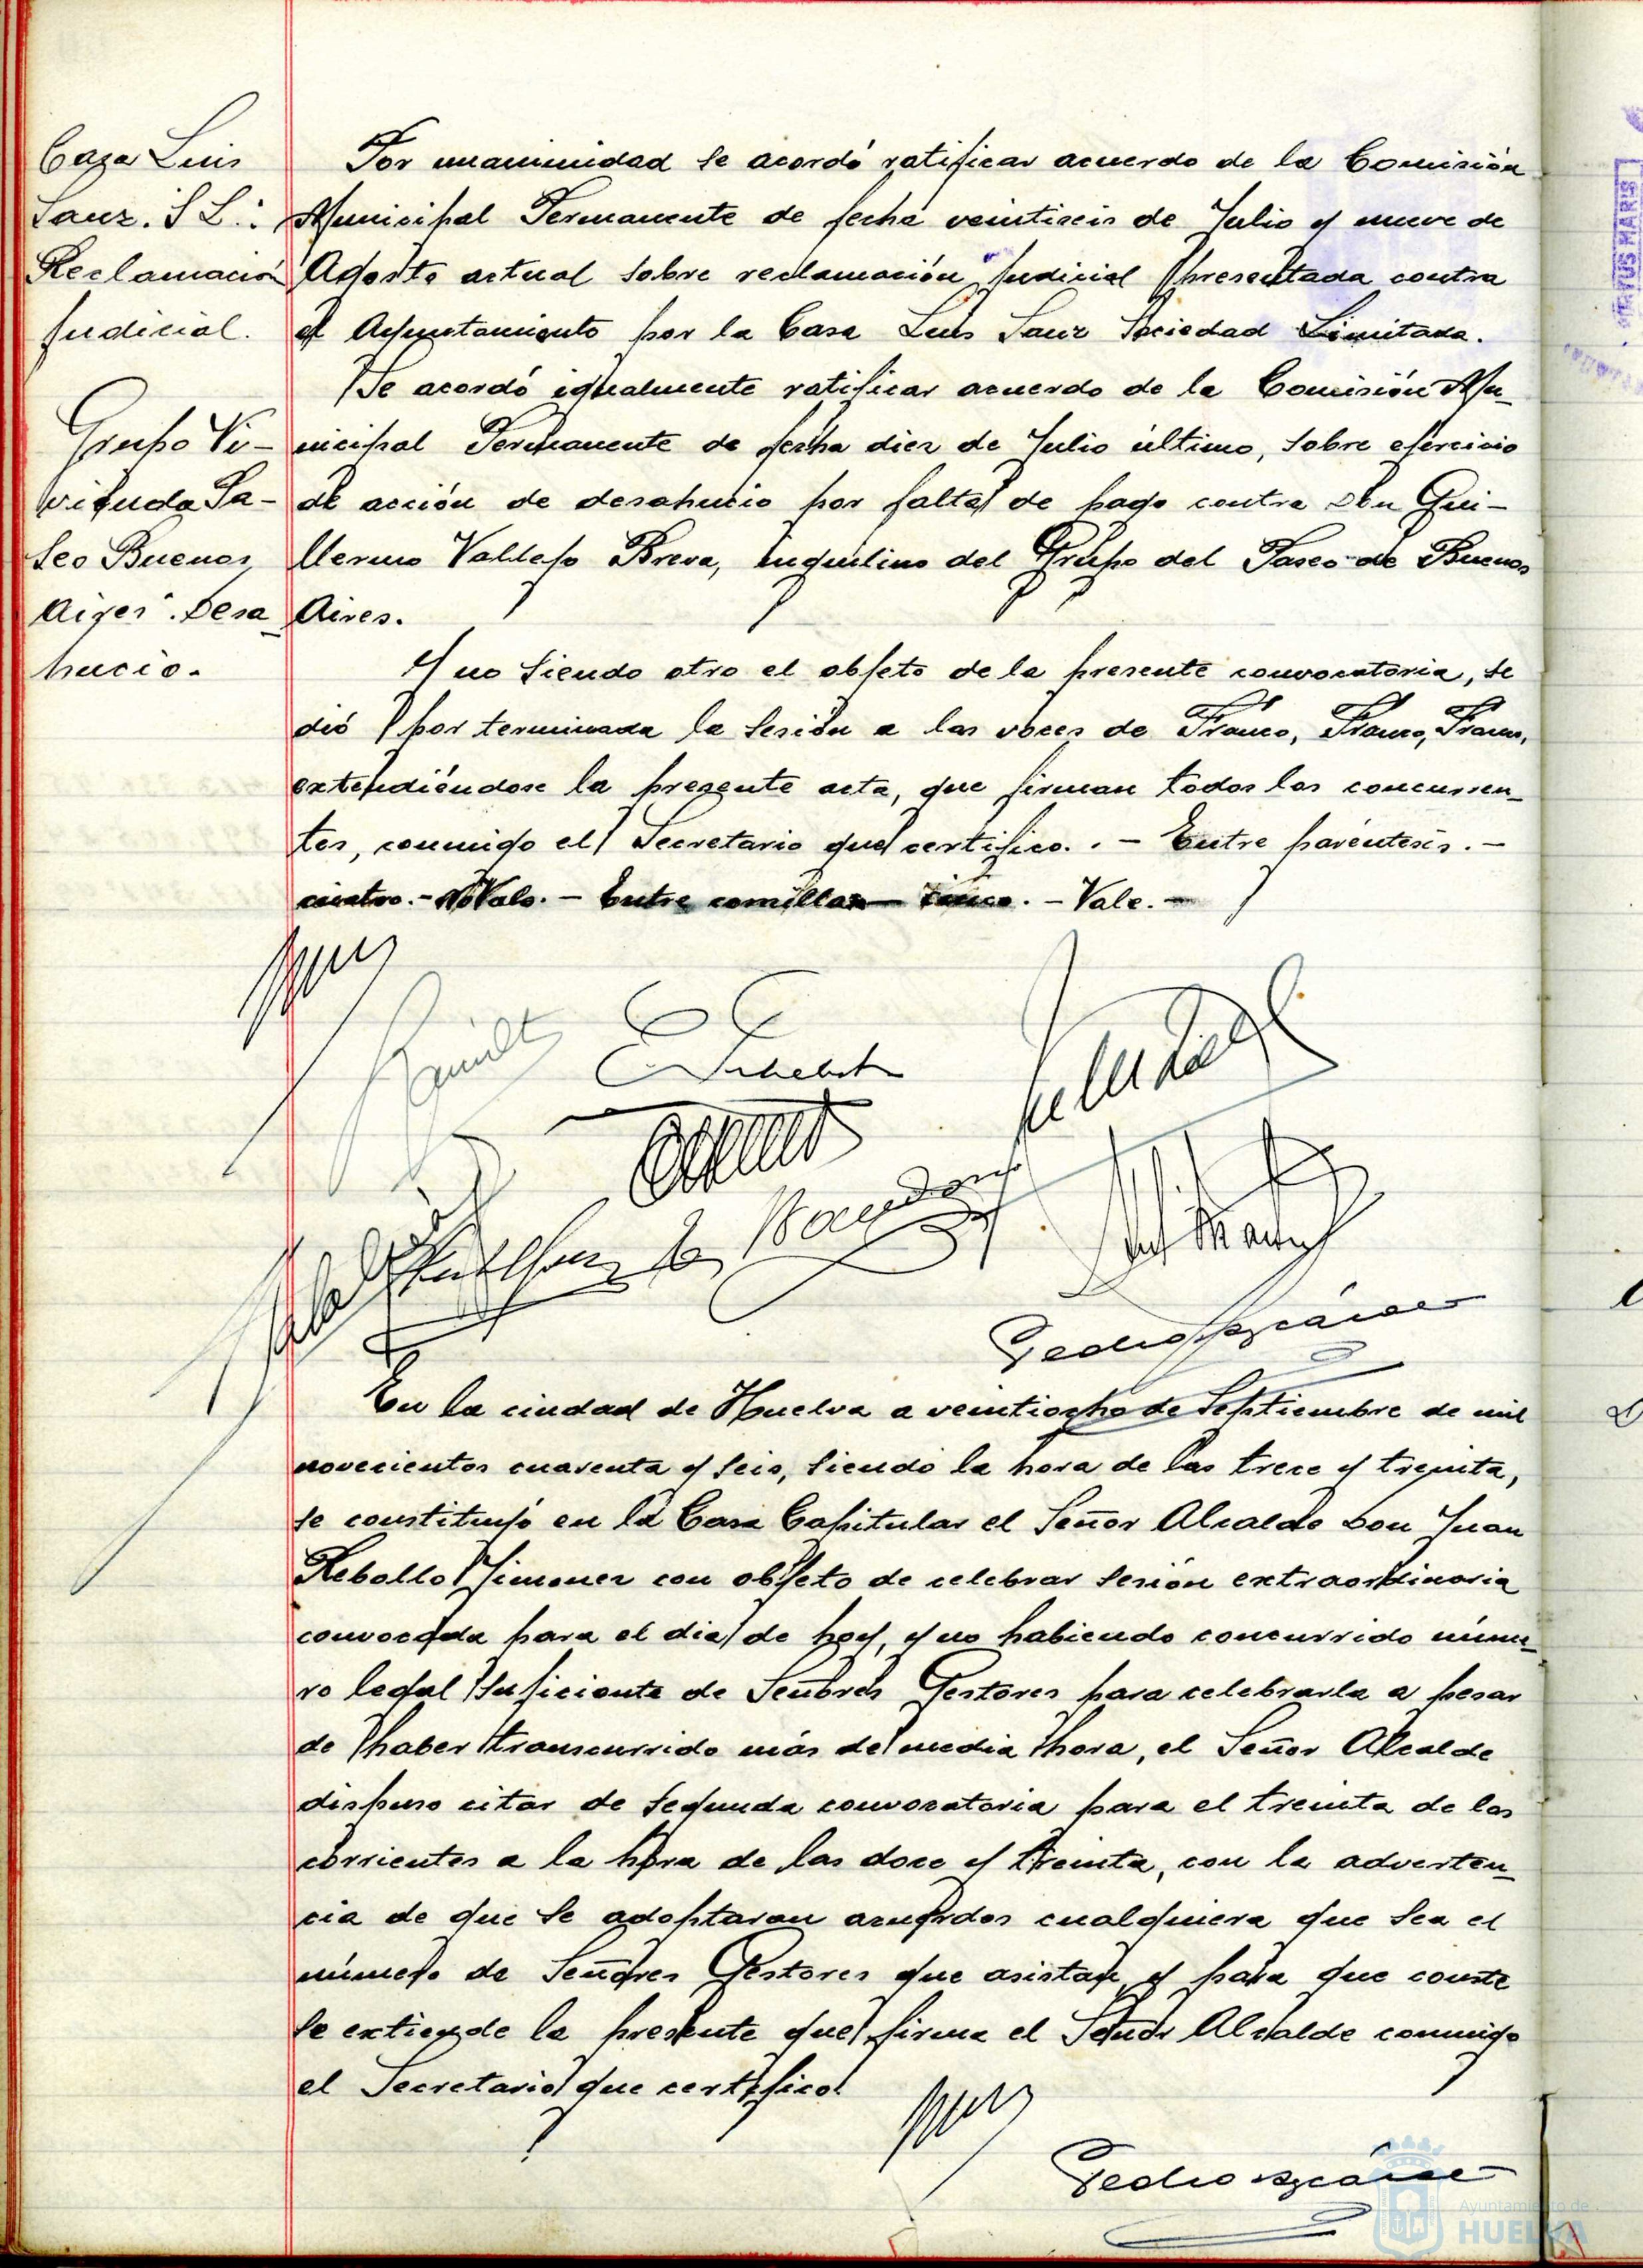 Casa Luis
Sanz. S L.:
Reclamación
judicial.
Por unanimidad se acordó ratificar acuerdo de la Comisión
Municipal Permanente de fecha veintiseis de Julio y nueve de
Agosto actual sobre reclamación judicial presentada contra
el Ayuntamiento por la Casa Luis Sanz Sociedad Limitada.
Grupo Vi-
vienda Pa-
seo Buenos
Aires". Desa-
hucio.
Se acordó igualmente ratificar acuerdo de la Comisión Mu-
nicipal Permanente de fecha diez de Julio último, sobre ejercicio
de acción de desahucio por falta de pago contra Don Gui-
llermo Vallejo Breva, inquilino del Grupo del Paseo de Buenos
Aires.
Y no siendo otro el objeto de la presente convocatoria, se
dió por terminada la sesión a las voces de Franco, Franco, Franco,
extendiéndose la presente acta, que firman todos los concurren-
tes, conmigo el Secretario que certifico. . - Entre paréntesis. -
cuatro. - No Vale. - Entre comillas - cinco. - Vale. -
En la ciudad de Huelva a veintiocho de Septiembre de mil
novecientos cuarenta y seis, siendo la hora de las trece y treinta,
se constituyó en la Casa Capitular el Señor Alcalde Don Juan
Rebollo Jimenez con objeto de celebrar sesión extraordinaria
convocada para el dia de hoy, y no habiendo concurrido núme-
ro legal suficiente de Señores Gestores para celebrarla a pesar
de haber transcurrido más de media hora, el Señor Alcalde
dispuso citar de segunda convocatoria para el treinta de los
corrientes a la hora de las doce y treinta, con la adverten-
cia de que se adoptaran acuerdos cualquiera que sea el
número de Señores Gestores que asistan, y para que conste
se extiende la presente que firma el Señor Alcalde conmigo
el Secretario que certifico.
Ayuntamiento de
HUELVA